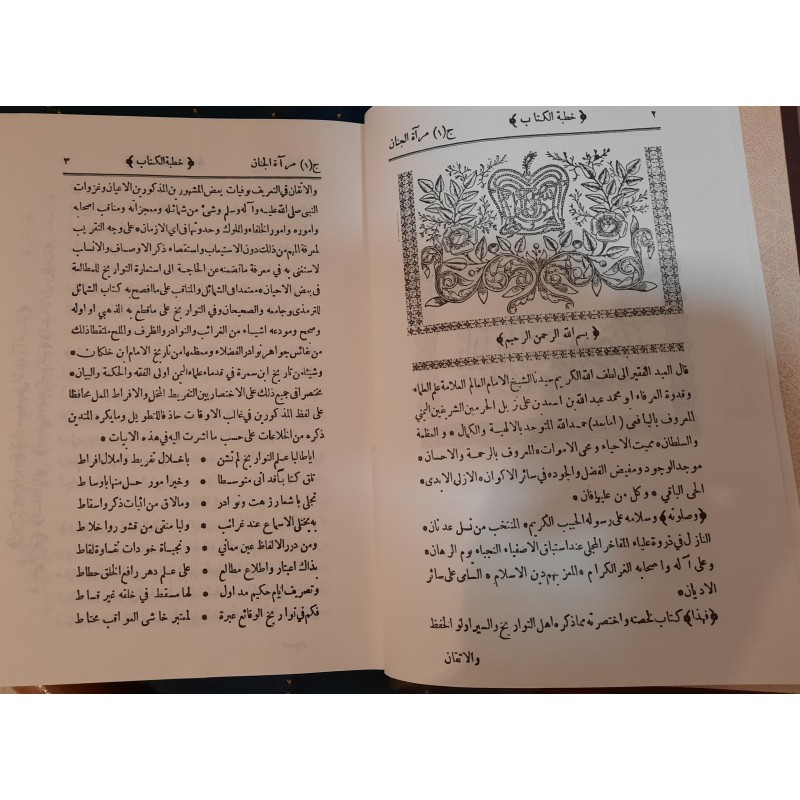 ٢
﴿ خطبة الكتاب ﴾
ج(١) مرآة الجنان
﴿ بسم الله الرحمن الرحيم ﴾
قال العبد الفقير الى لطف الله الكريم سيدنا الشيخ الامام العالم العلامة علم العلماء
وقدوة العرفاء ابو محمد عبد الله بن اسعد بن علي نزيل الحرمين الشريفين اليمني
المعروف باليافعي (اما بعد) حمد الله المتوحد بالالهية والكمال * والعظمة
والسلطان * مميت الاحياء ومحي الاموات * المعروف بالرحمة والاحسان *
موجد الوجود ومفيض الفضل والجود * في سائر الاكوان * الازلي الابدي *
الحي الباقي * وكل من عليها فان *
﴿وصلوته﴾ وسلامه على رسوله الحبيب الكريم * المنتخب من نسل عدنان
النازل في ذروة علياء المفاخر المجلى عند استباق الاصفياء النجباء يوم الرهان *
وعلى آله واصحابه الغر الكرام * المعز بهم دين الاسلام * السامي على سائر
الاديان *
﴿فهذا﴾ كتاب لخصته واختصرته مما ذكره اهل التواريخ والسير اولو الحفظ
والاتقان
ج(١) مرآة الجنان
﴿ خطبة الكتاب ﴾
٣
والاتقان في التعريف بوفيات بعض المشهورين المذكورين الاعيان وغزوات
النبي صلى الله عليه وآله وسلم وشيء من شمائله ومعجزاته ومناقب اصحابه
واموره وامور الخلفاء والملوك وحدوثها في اي الازمان * على وجه التقريب
لمعرفة المهم من ذلك دون الاستيعاب واستقصاء ذكر الاوصاف والانساب
لاستغنى به في معرفة ما تضمنه عن الحاجة الى استعارة التواريخ للمطالعة
في بعض الاحيان * معتمدا في الشمائل والمناقب على ما افصح به كتاب الشمائل
للترمذي وجامعه والصحيحان وفي التواريخ على ما قطع به الذهبي او اوله
وصحح ومودعه اشياء من الغرائب والنوادر والظرف والملح ملتقطا ذلك
من نفائس جواهر نوادر الفضلاء * ومعظمها من تاريخ الامام ابن خلكان *
وشيئا من تاريخ ابن سمرة في قدماء علماء اليمن اولى الفقه والحكمة والبيان *
مختصرا في جميع ذلك على الاختصار بين التفريط المخل والافراط الممل محافظا
على لفظ المذكورين في غالب الاوقات حاذفا للتطويل وما يكره للمتدين
ذكره من الخلاعات على حسب ما اشرت اليه في هذه الابيات *
ايا طالبا علم التواريخ لم تشن * باخلال تفريط واملال افراط
تلق كتابا قد اتى متوسطا * وخير امور حسل منها باوساط
تجلى باشعار زهت ونوادر * وما لاق من اثبات ذكر واسقاط
به يحتلى الاسماع عند غرائب * ولبا منقى من قشور وخلاط
ومن درر الالفاظ عين معاني * ونجباة خودات نقاوة لقاط
بذاك اعتبار واطلاع مطالع * على علم دهر رافع الخلق حطاط
وتصريف ايام حكيم مداول * لها مسقط في خلقه غير قساط
فكم في تواريخ الوقائع عبرة * لمعتبر خاشى العواقب محتاط